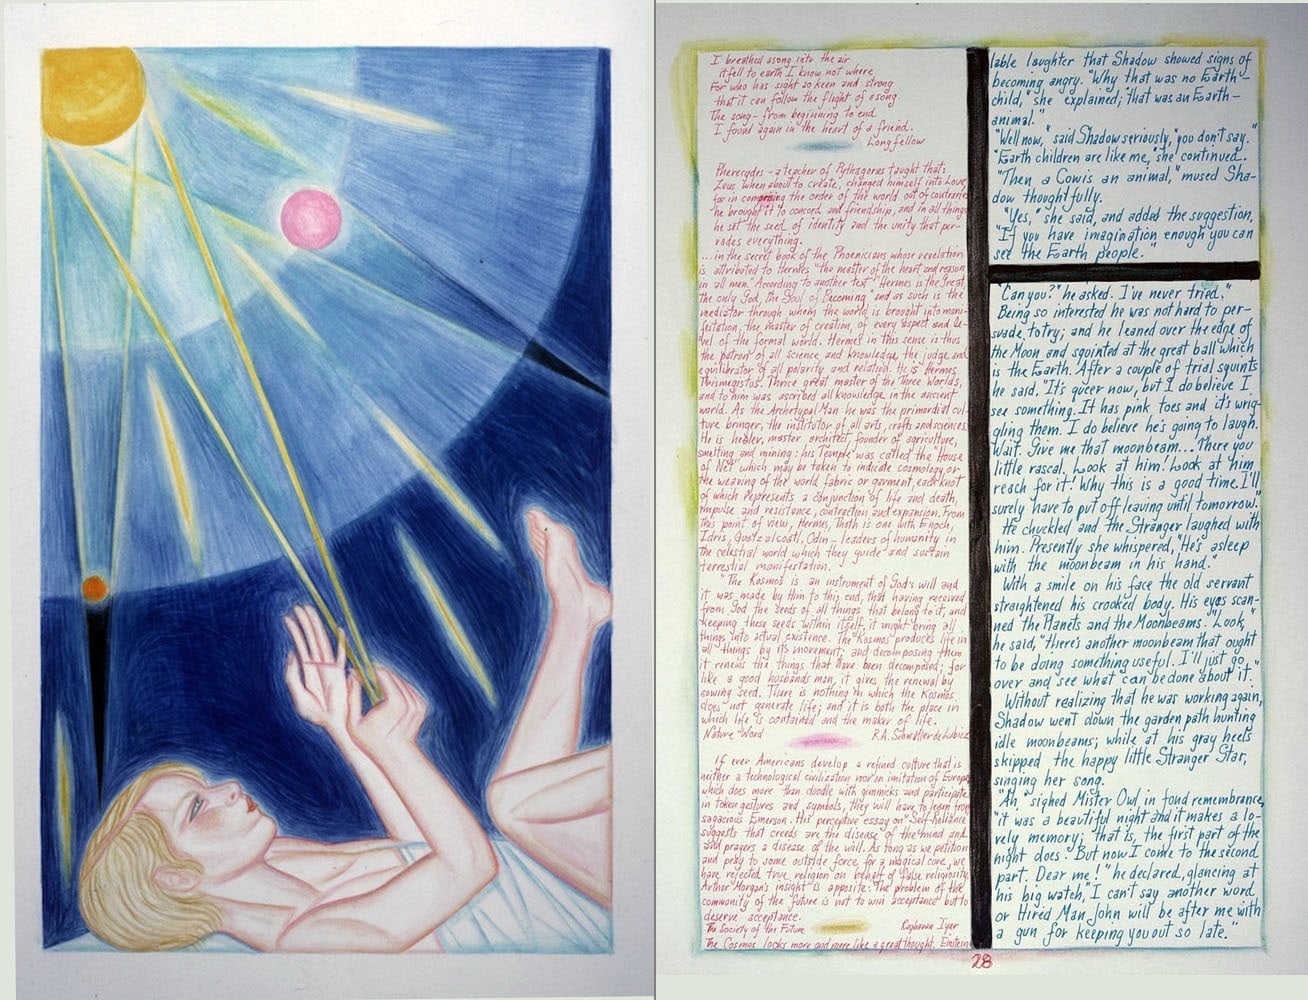 I breathed a song into the air
it fell to earth I know not where
For who has sight so keen and strong
that it can follow the flight of a song
The song - from beginning to end
I found again in the heart of a friend.
Longfellow
Pherecydes - a teacher of Pythagoras taught that:
Zeus when about to create, changed himself into Love,
for in composing the order of the world out of contraries
he brought it to concord and friendship, and in all things
he set the seed of identity and the unity that per-
vades everything.
...in the secret book of the Phoenicians whose revelation
is attributed to Hermes "the master of the heart and reason
in all men." According to another text "Hermes is the Great,
the only God, the Soul of Becoming" and as such is the
mediator through whom the world is brought into mani-
festation, the master of creation, of every aspect and le-
vel of the formal world. Hermes in this sense is thus
the patron of all science and knowledge, the judge and
equilibrator of all polarity and relation. He is Hermes
Thismegistus. Thrice great master of the Three Worlds,
and to him was ascribed all knowledge in the ancient
world. As the Archetypal Man he was the primordial cul-
ture bringer, the institutor of all arts, crafts and sciences.
He is healer, master, architect, founder of agriculture,
smelting and mining: his Temple was called the "House
of Net" which may be taken to indicate cosmology or
the weaving of the world fabric or garment, each knot
of which represents a conjunction of life and death,
impulse and resistence, contraction and expansion. From
this point of view, Hermes, Thoth is one with Enoch,
Idris, Quetzalcoatl, Odin - leaders of humanity in
the celestral world which they guide and sustain
terrestial manifestation.
"The Kosmos is an instrument of God's will and
it was made by him to this end, that having received
from God the seeds of all things that belong to it, and
keeping these seeds within itself, it might bring all
things into actual existence. The Kosmos produces life in
all things by its movement; and decomposing them
it renews the things that have been decomposed; for
like a good husbands man, it gives the renewal by
sowing seed. There is nothing in which the Kosmos
does not generate life; and it is both the place in
which life is contained and the maker of life.
Nature Word R.A. Schwaller de Lubicz
If ever Americans develop a refined culture that is
neither a technological civilization nor an imitation of Europe
which does more than doodle with gimmicks and participate
in token gestures and symbols, they will have to learn from
sagacious Emerson. His perceptive essay on "Self-Reliance"
suggests that creeds are the disease of the mind and
and prayers a disease of the will. As long as we petition
and pray to some outside force, for a magical cure, we
have rejected true religion on behalf of false religiosity
Arthur Morgan's insight is apposite: The problem of the
community of the future is not to win acceptance but to
deserve acceptance.
The Society of the Future Raghavan Iyer
The Cosmos looks more and more like a great thought. Einstein
lable laughter that Shadow showed signs of
becoming angry. "Why that was no Earth-
child," she explained; "that was an Earth-
animal."
"Well now," said Shadow seriously, "you don't say."
"Earth children are like me," she continued.
"Then a Cow is an animal," mused Sha-
dow thoughtfully.
"Yes," she said, and added the suggestion,
"If you have imagination enough you can
see the Earth people."
"Can you?" he asked. I've never tried."
Being so interested he was not hard to per-
suade to try; and he leaned over the edge of
the Moon and squinted at the great ball which
is the Earth. After a couple of trial squints
he said. "It's queer now, but I do believe I
see something. It has pink toes and it's wrig-
gling them. I do believe he's going to laugh.
Wait. Give me that moonbeam... There you
little rascal. Look at him! Look at him
reach for it! Why this is a good time. I'll
surely have to put off leaving until tomorrow."
He chuckled and the Stranger laughed with
him. Presently she whispered, "He's asleep
with the moonbeam in his hand."
With a smile on his face the old servant
straightened his crooked body. His eyes scan-
ned the Planets and the Moonbeams. "Look,"
he said, "There's another moonbeam that ought
to be doing something useful. I'll just go
over and see what can be done about it."
Without realizing that he was working again,
Shadow went down the garden path hunting
idle moonbeams; while at his gray heels
skipped the happy little Stranger Star,
singing her song.
"Ah," sighed Mister Owl in fond remembrance,
"it was a beautiful night and it makes a lo-
vely memory; that is, the first part of the
night does. But now I come to the second
part. Dear me!" he declared, glancing at
his big watch," I can't say another word
or Hired Man John will be after me with
a gun for keeping you out so late."
28